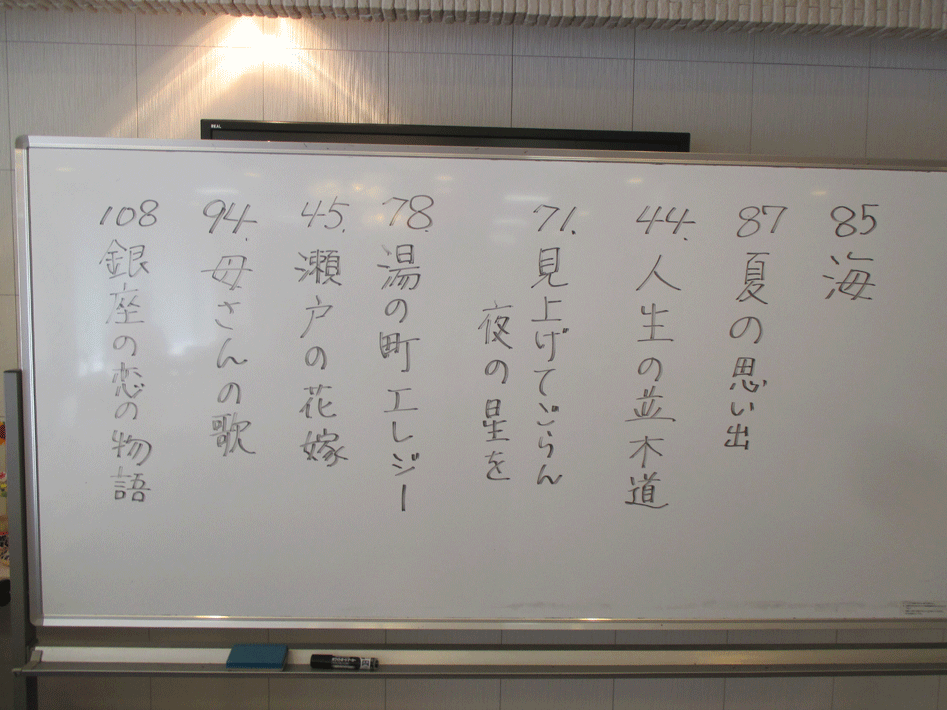 85 海
87 夏の思い出
44. 人生の並木道
71. 見上げてごらん
夜の星を
78. 湯の町エレジー
45. 瀬戸の花嫁
94. 母さんの歌
108 銀座の恋の物語
REAL